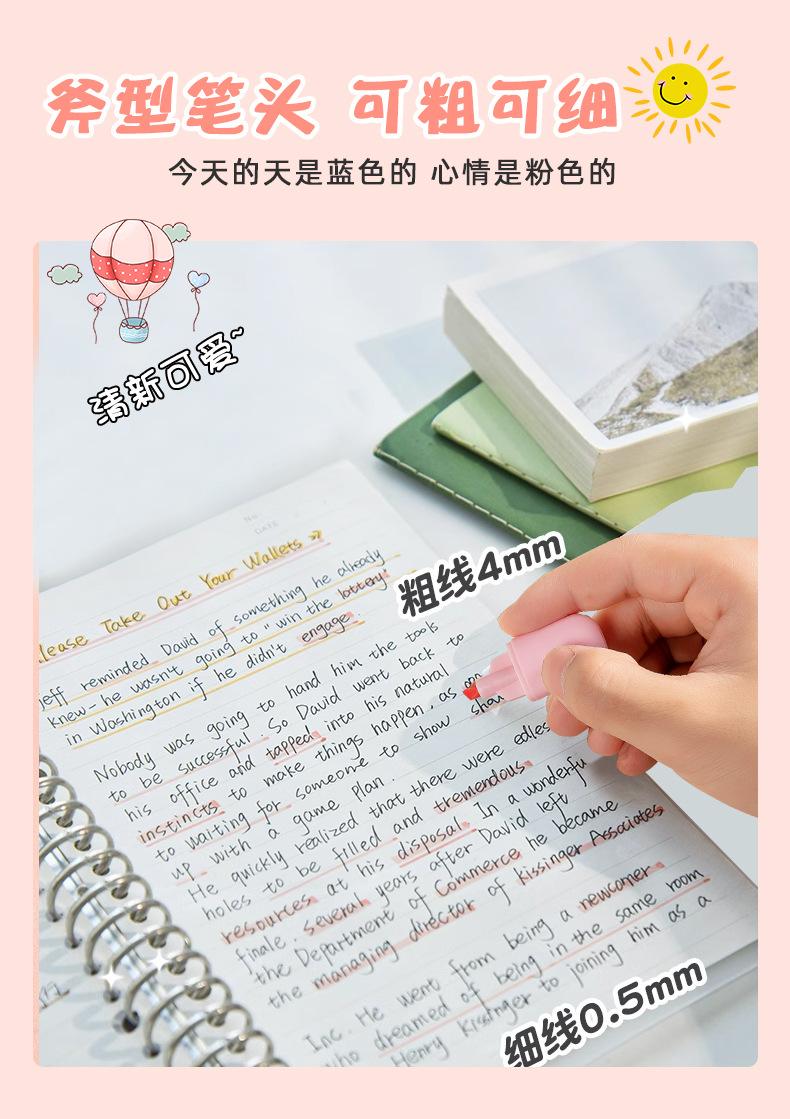 斧型笔头 可粗可细
今天的天是蓝色的 心情是粉色的
清新可爱~
粗线4mm
No
DATE
Please Take Out Your Wallets
Jeff reminded David of something he already
knew- he wasn't going to "win the lottery"
in Washington if he didn't engage.
Nobody was going to hand him the tools
to be successful. So David went back to
his office and tapped into his natural
instincts to make things happen, as
to waiting for someone to show
up with a game plan.
He quickly realized that there were
holes to be filled and tremendous
resources at his disposal. In a
finale. several years after David left
the Department of Commerce he became
the managing director of Kissinger Associates
Inc. He went from being a newcomer
who dreamed of being in the same room
Henry Kissinger to joining him as a
细线0.5mm